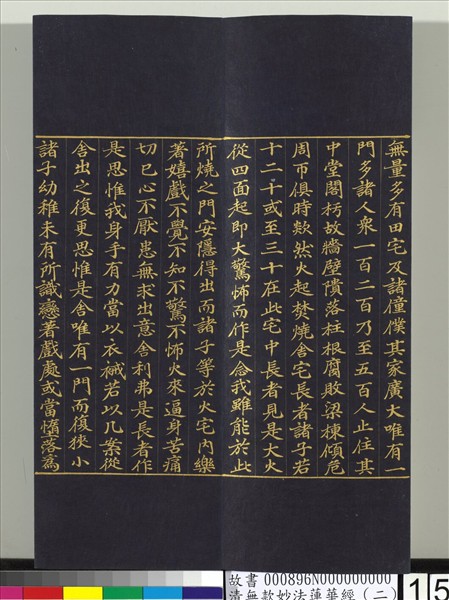 無量多有田宅及諸僮僕其家廣大唯有一
門多諸人衆一百二百乃至五百人止住其
中堂閣朽故牆壁隤落柱根腐敗梁棟傾危
周帀俱時欻然火起焚燒舍宅長者諸子若
十二十或至三十在此宅中長者見是大火
從四面起即大驚怖而作是念我雖能於此
所燒之門安隱得出而諸子等於火宅內樂
著嬉戲不覺不知不驚不怖火來逼身苦痛
切己心不厭患無求出意舍利弗是長者作
是思惟我身手有力當以衣裓若以几案從
舍出之復更思惟是舍唯有一門而復狹小
諸子幼稚未有所識戀著戲處或當墮落為
故書 000896N000000000
清無款妙法蓮華經（二）
15